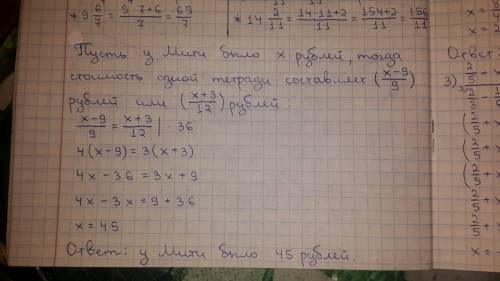 * 9 6/7 = (9·7+6)/7 = 69/7
* 14 2/11 = (14·11+2)/11 = (154+2)/11 = 156/11
Пусть у Мити было x рублей, тогда
стоимость одной тетради составляет ((x-9)/9)
рублей или ((x+3)/12) рублей:
(x-9)/9 = (x+3)/12 | · 36
4(x-9) = 3(x+3)
4x - 36 = 3x + 9
4x - 3x = 9 + 36
x = 45
Ответ: у Мити было 45 рублей.
x =
Ответ:
3)